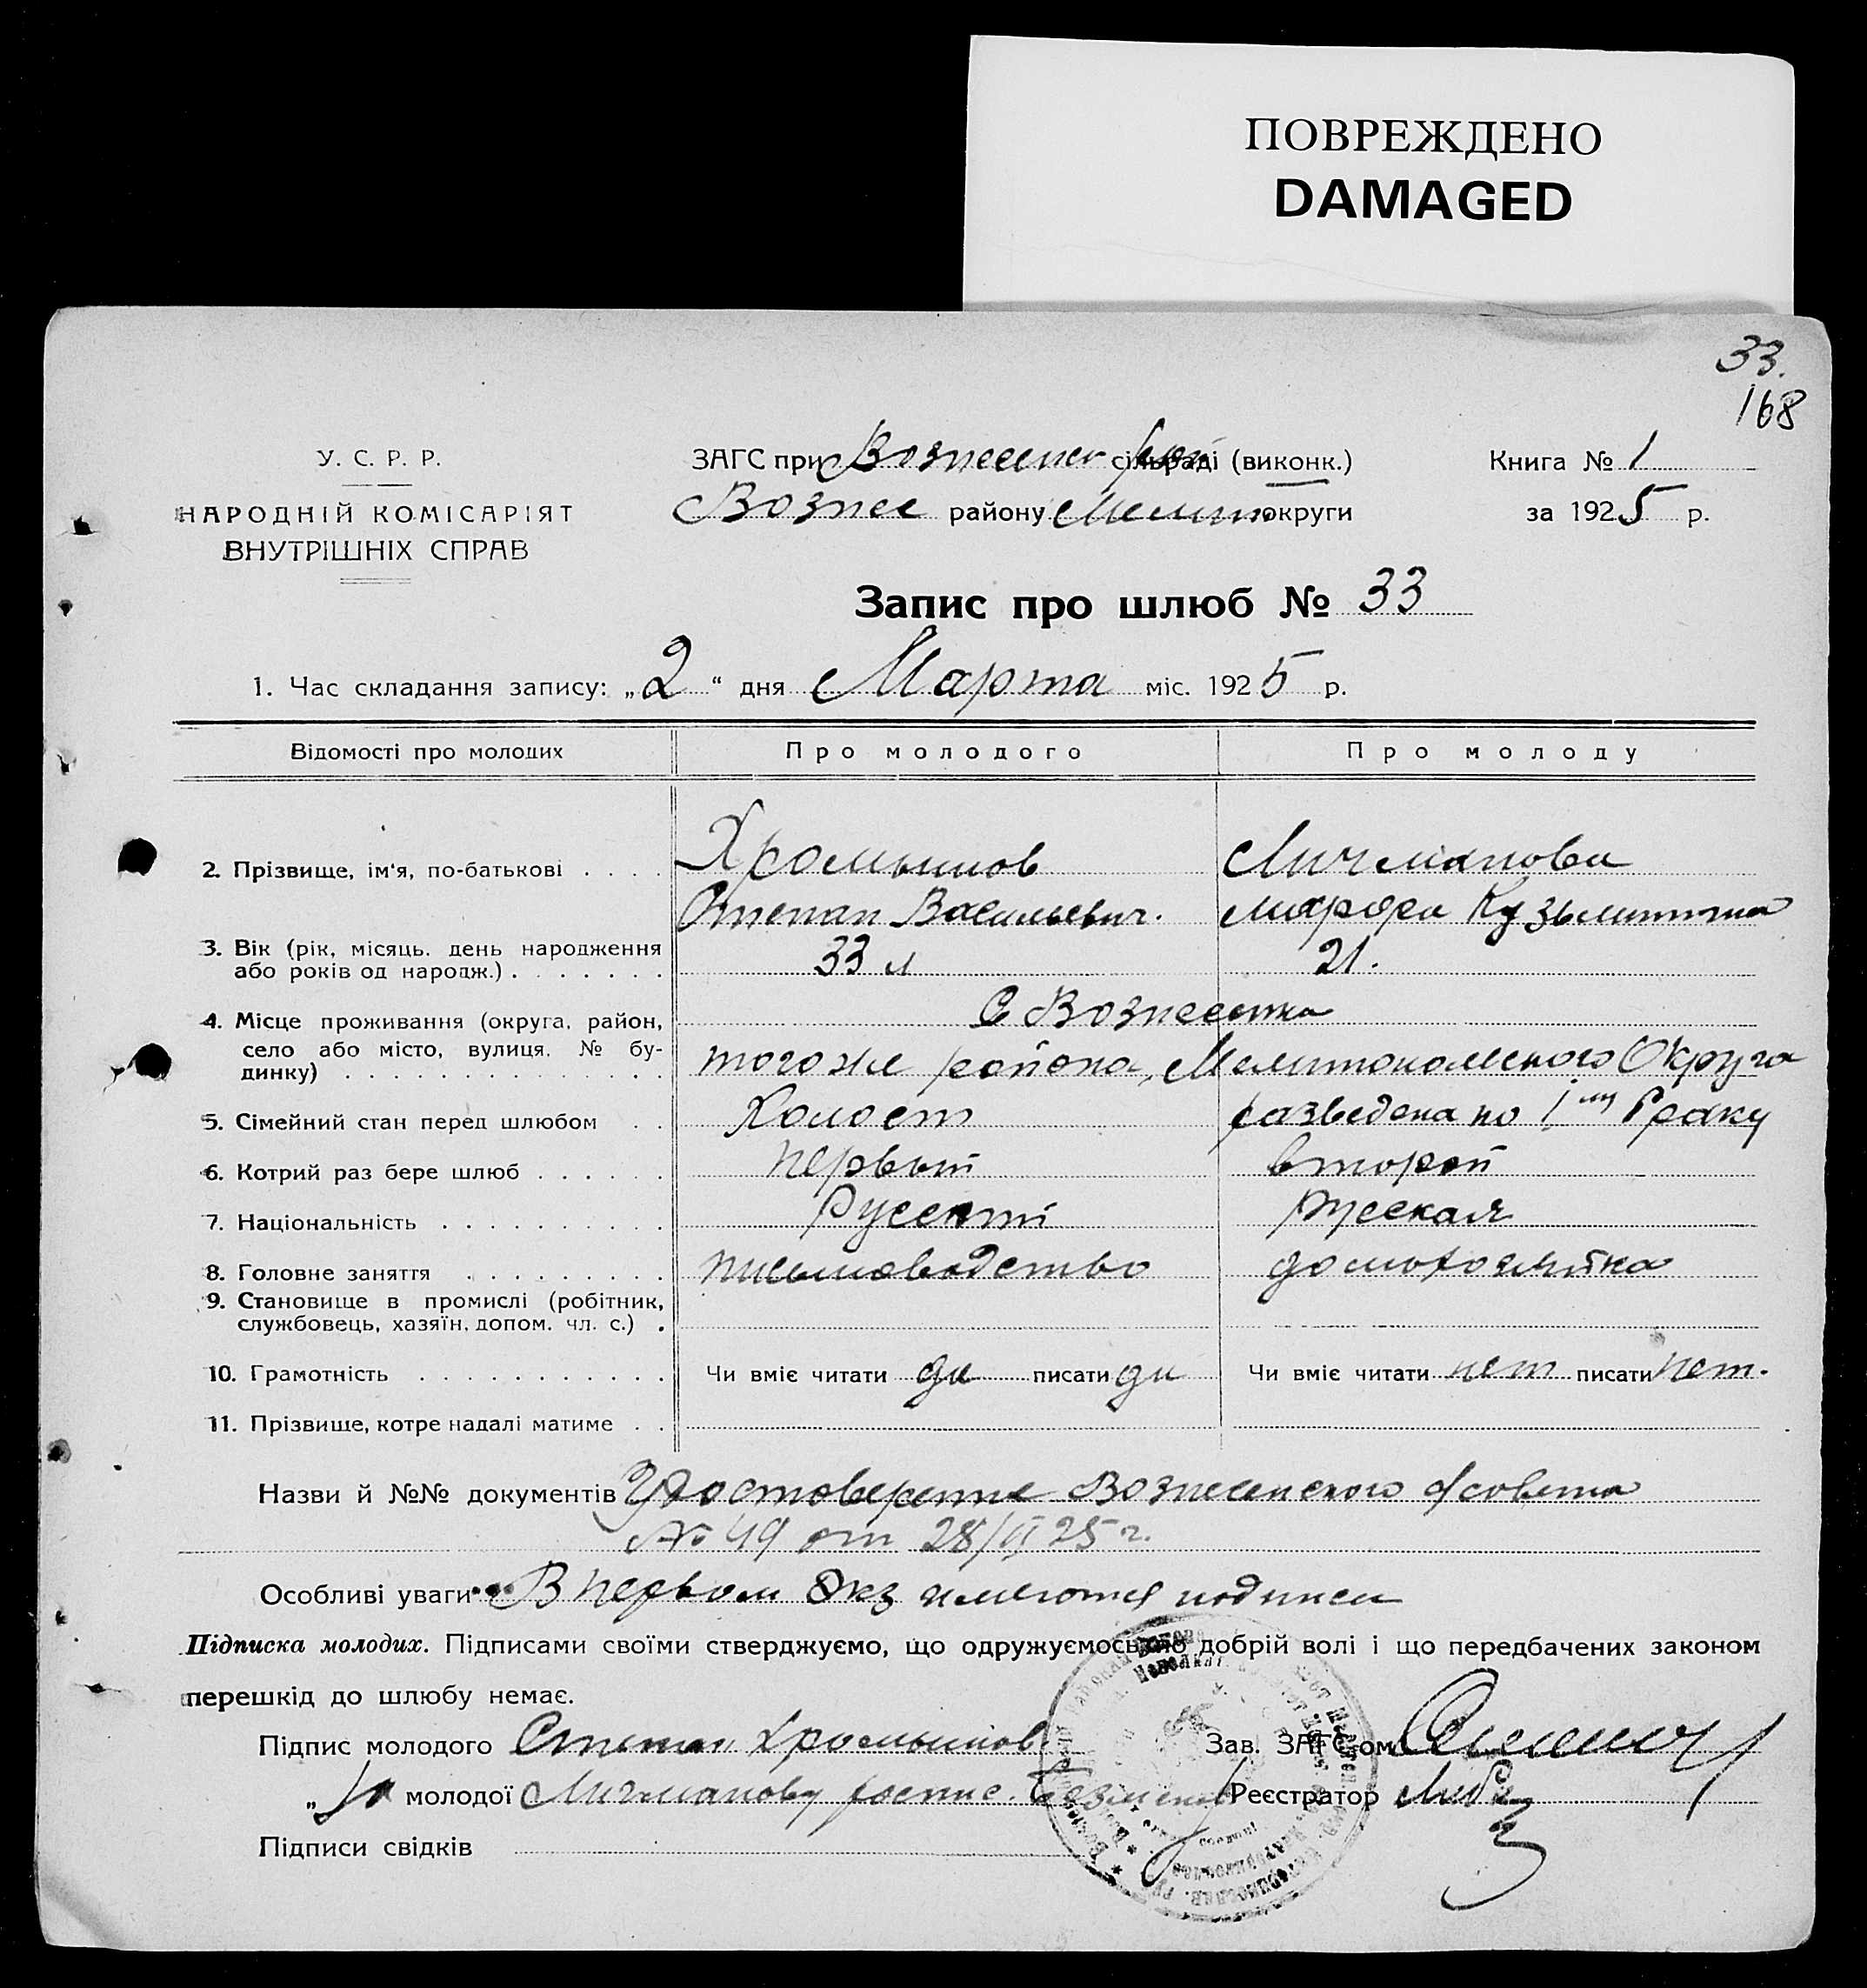 ПОВРЕЖДЕНО
DAMAGED
33.
168
У. С. Р. Р.
НАРОДНІЙ КОМІСАРІЯТ
ВНУТРІШНІХ СПРАВ
ЗАГС при Вознесенск сільраді (виконк.)
Вознес району Мелит округи
Книга № 1
за 1925 р.
Запис про шлюб № 33
1. Час складання запису: „2“ дня Марта міс. 1925 р.
Відомості про молодих
Про молодого
Про молоду
2. Прізвище, ім'я, по-батькові
Хромышов
Степан Васильевич.
Личманова
Марфа Кузьминична
3. Вік (рік, місяць, день народження
або років од народж.)
33 л
21.
4. Місце проживання (округа, район,
село або місто, вулиця, № бу-
динку)
С Вознесенка
того же района, Мелитопольского Округа
5. Сімейний стан перед шлюбом
Холост
разведена по 1му браку
6. Котрий раз бере шлюб
первый
второй
7. Національність
Русский
Русская
8. Головне заняття
письмоводство
домохозяйка
9. Становище в промислі (робітник,
службовець, хазяїн, допом. чл. с.)
10. Грамотність
Чи вміє читати да писати да
Чи вміє читати нет писати нет.
11. Прізвище, котре надалі матиме
Назви й №№ документів Удостоверение Вознесенского с/совета
№ 49 от 28/II 25 г.
Особливі уваги В первом Экз имеются подписи
Підписка молодих. Підписами своїми стверджуємо, що одружуємось по добрій волі і що передбачених законом
перешкід до шлюбу немає.
Підпис молодого Степан Хромышов
Зав. ЗАГС'ом
„ молодої Личманову роспис.
Реєстратор
Підписи свідків